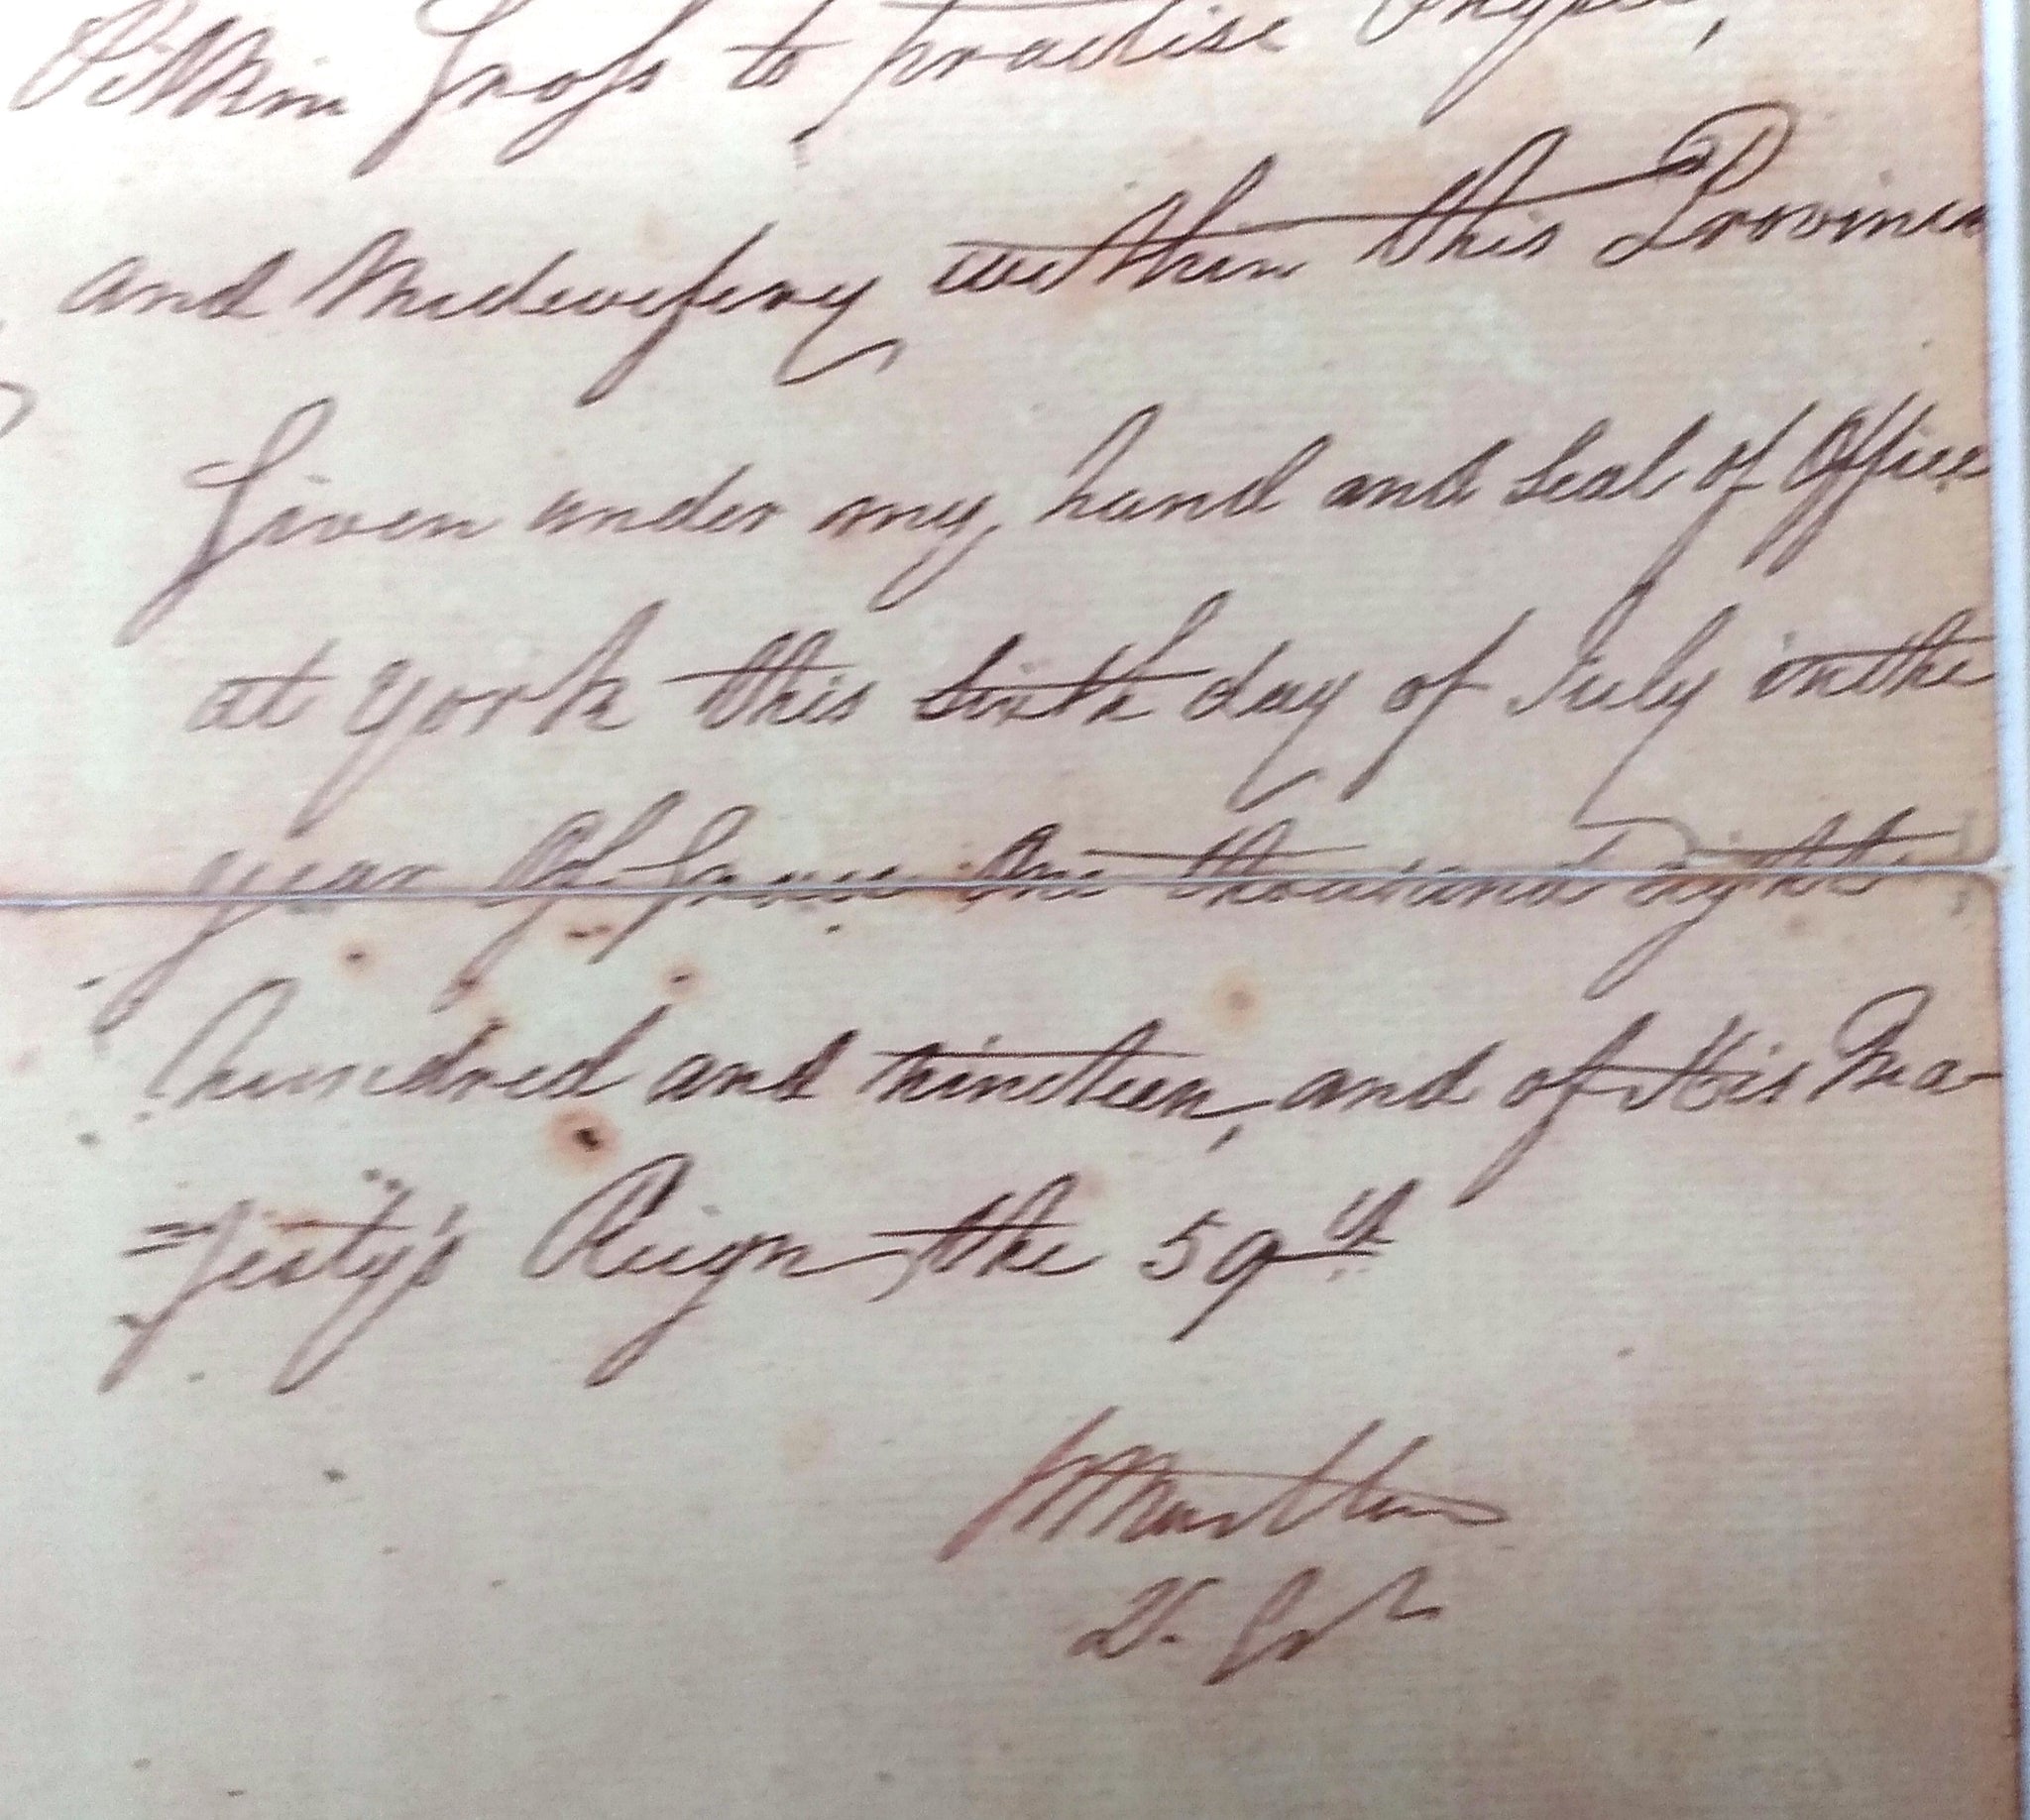 Pitkin Gross to practise Physic,
and Midwifery within this Province
Given under my hand and Seal of Office
at York this sixth day of July in the
year Of Grace One thousand eight
hundred and nineteen, and of His Ma-
=jesty's Reign the 59th